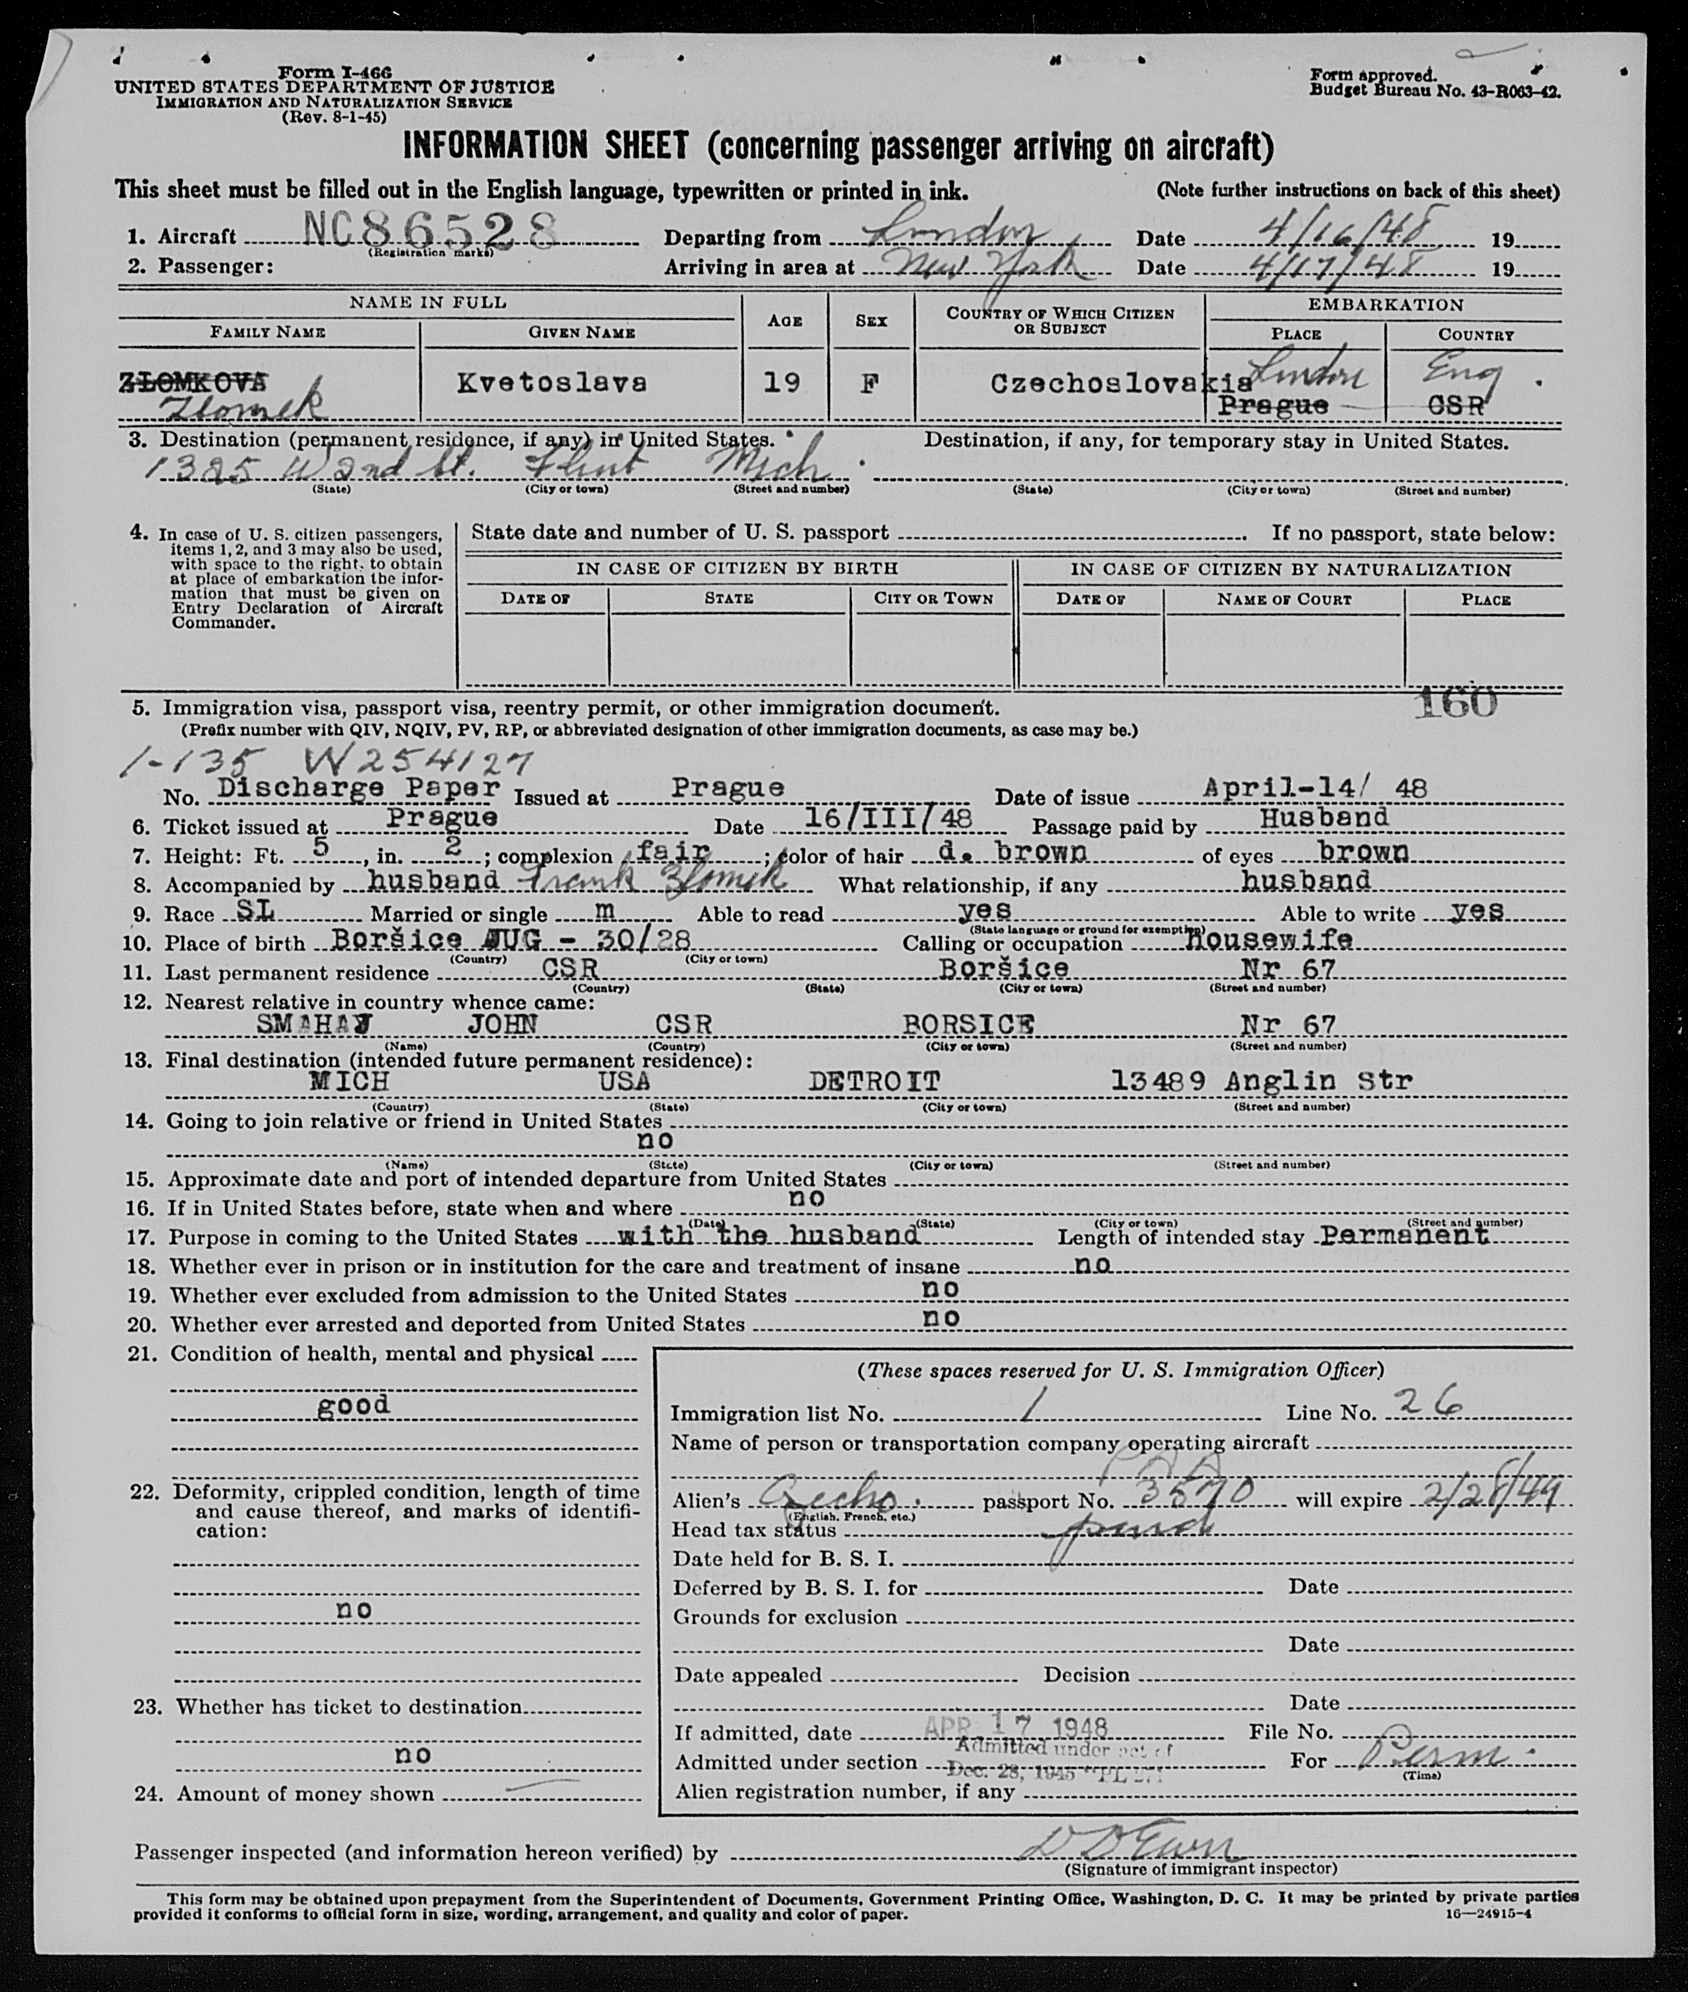 Form I-466
UNITED STATES DEPARTMENT OF JUSTICE
IMMIGRATION AND NATURALIZATION SERVICE
(Rev. 8-1-45)
Form approved.
Budget Bureau No. 43-R063-42.
INFORMATION SHEET (concerning passenger arriving on aircraft)
This sheet must be filled out in the English language, typewritten or printed in ink. (Note further instructions on back of this sheet)
1. Aircraft NC86528 Departing from London Date 4/16/48 19
(Registration marks)
2. Passenger: Arriving in area at New York Date 4/17/48 19
NAME IN FULL
FAMILY NAME GIVEN NAME AGE SEX COUNTRY OF WHICH CITIZEN OR SUBJECT EMBARKATION
PLACE COUNTRY
ZLOMKOVA Kvetoslava 19 F Czechoslovakia London Eng.
Zlomek Prague CSR
3. Destination (permanent residence, if any) in United States. Destination, if any, for temporary stay in United States.
1325 W 2nd St. Flint Mich.
(State) (City or town) (Street and number) (State) (City or town) (Street and number)
4. In case of U. S. citizen passengers, items 1, 2, and 3 may also be used, with space to the right, to obtain at place of embarkation the information that must be given on Entry Declaration of Aircraft Commander.
State date and number of U. S. passport . If no passport, state below:
IN CASE OF CITIZEN BY BIRTH IN CASE OF CITIZEN BY NATURALIZATION
DATE OF STATE CITY OR TOWN DATE OF NAME OF COURT PLACE
160
5. Immigration visa, passport visa, reentry permit, or other immigration document.
(Prefix number with QIV, NQIV, PV, RP, or abbreviated designation of other immigration documents, as case may be.)
1-135 W254127
No. Discharge Paper Issued at Prague Date of issue April-14/ 48
6. Ticket issued at Prague Date 16/III/48 Passage paid by Husband
7. Height: Ft. 5, in. 2; complexion fair; color of hair d. brown of eyes brown
8. Accompanied by husband Frank Zlomek What relationship, if any husband
9. Race SL Married or single m Able to read yes Able to write yes
(State language or ground for exemption)
10. Place of birth Boršice AUG - 30/28 Calling or occupation housewife
(Country) (City or town)
11. Last permanent residence CSR Boršice Nr 67
(Country) (State) (City or town) (Street and number)
12. Nearest relative in country whence came:
JOHN CSR BORSICE Nr 67
(Name) (Country) (City or town) (Street and number)
13. Final destination (intended future permanent residence):
MICH USA DETROIT 13489 Anglin Str
(Country) (State) (City or town) (Street and number)
14. Going to join relative or friend in United States
no
(Name) (State) (City or town) (Street and number)
15. Approximate date and port of intended departure from United States
16. If in United States before, state when and where no
(Date) (State) (City or town) (Street and number)
17. Purpose in coming to the United States with the husband Length of intended stay Permanent
18. Whether ever in prison or in institution for the care and treatment of insane no
19. Whether ever excluded from admission to the United States no
20. Whether ever arrested and deported from United States no
21. Condition of health, mental and physical
good
22. Deformity, crippled condition, length of time and cause thereof, and marks of identification:
no
23. Whether has ticket to destination
no
24. Amount of money shown
(These spaces reserved for U. S. Immigration Officer)
Immigration list No. 1 Line No. 26
Name of person or transportation company operating aircraft
PAA
Alien's Czecho. passport No. 3570 will expire 2/28/49
(English, French, etc.)
Head tax status
Date held for B. S. I.
Deferred by B. S. I. for Date
Grounds for exclusion
Date
Date appealed Decision
Date
If admitted, date APR 17 1948 File No.
Admitted under section Admitted under act of For Perm.
Dec. 28, 1945 PL 271
(Time)
Alien registration number, if any
Passenger inspected (and information hereon verified) by
(Signature of immigrant inspector)
This form may be obtained upon prepayment from the Superintendent of Documents, Government Printing Office, Washington, D. C. It may be printed by private parties
provided it conforms to official form in size, wording, arrangement, and quality and color of paper.
16—24915-4